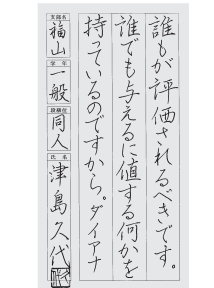 誰もが評価されるべきです。
誰でも与えるに値する何かを
持っているのですから。ダイアナ
支部名
福山
学年
一般
段級位
同人
氏名
津島久代